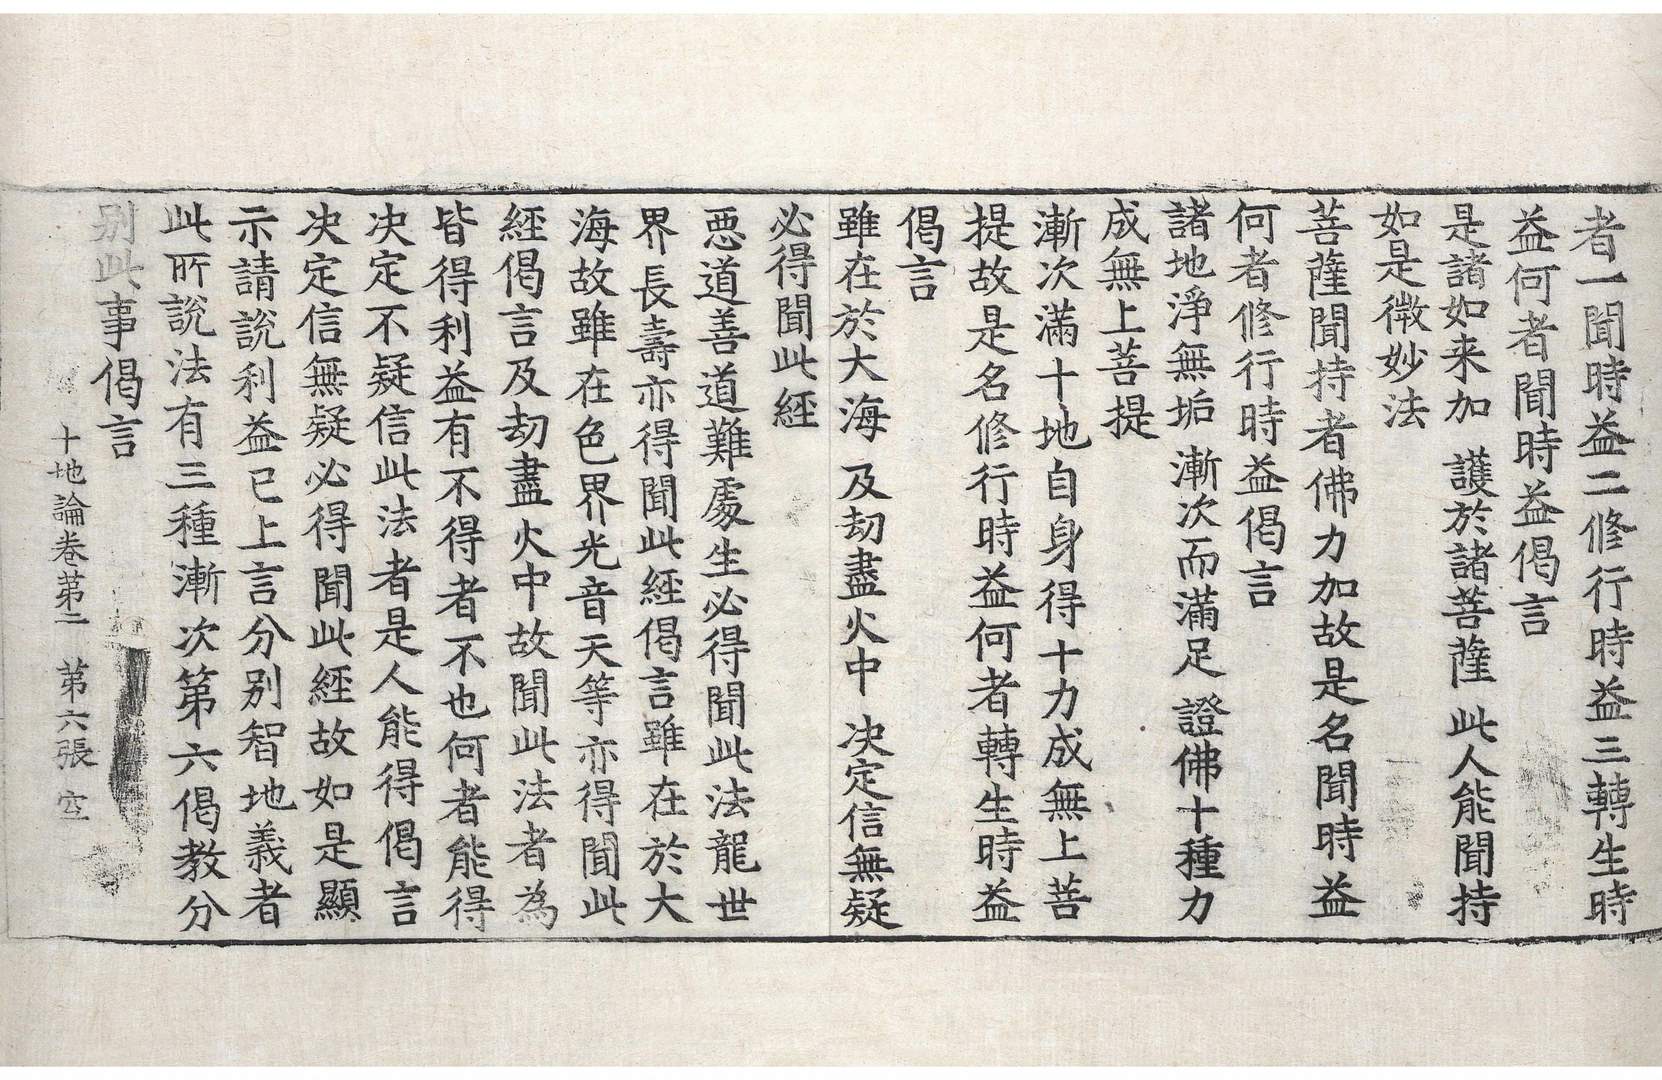 者一聞時益二修行時益三轉生時
益何者聞時益偈言
是諸如来加 護於諸菩薩 此人能聞持
如是微妙法
菩薩聞持者佛力加故是名聞時益
何者修行時益偈言
諸地淨無垢 漸次而滿足 證佛十種力
成無上菩提
漸次滿十地自身得十力成無上菩
提故是名修行時益何者轉生時益
偈言
雖在於大海 及劫盡火中 决定信無疑
必得聞此經
惡道善道難處生必得聞此法龍世
界長壽亦得聞此經偈言雖在於大
海故雖在色界光音天等亦得聞此
經偈言及劫盡火中故聞此法者為
皆得利益有不得者不也何者能得
决定不疑信此法者是人能得偈言
决定信無疑必得聞此經故如是顯
示請說利益已上言分别智地義者
此所說法有三種漸次第六偈教分
别此事偈言
十地論卷苐二 苐六張 空